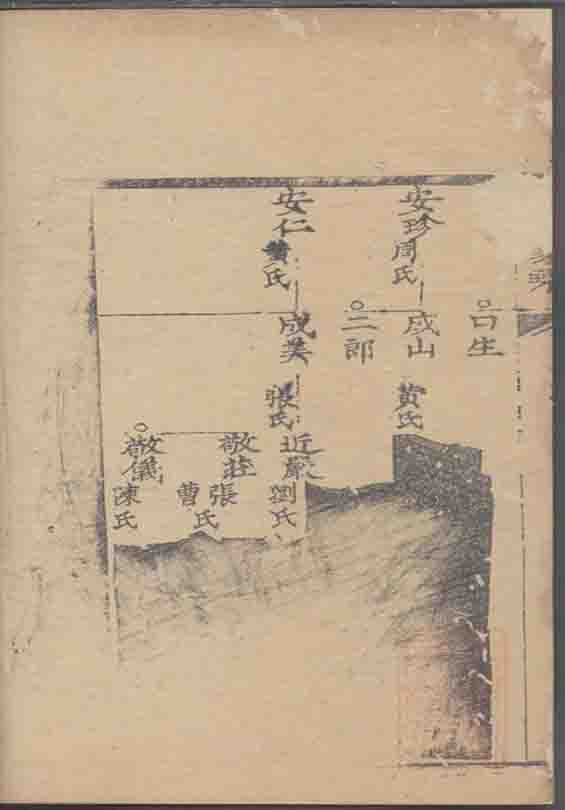 口生
安珍 周氏
成山 黄氏
二郎
安仁 黄氏
成美 張氏
近嚴 劉氏
敬莊 張 曹氏
敬儀 陳氏